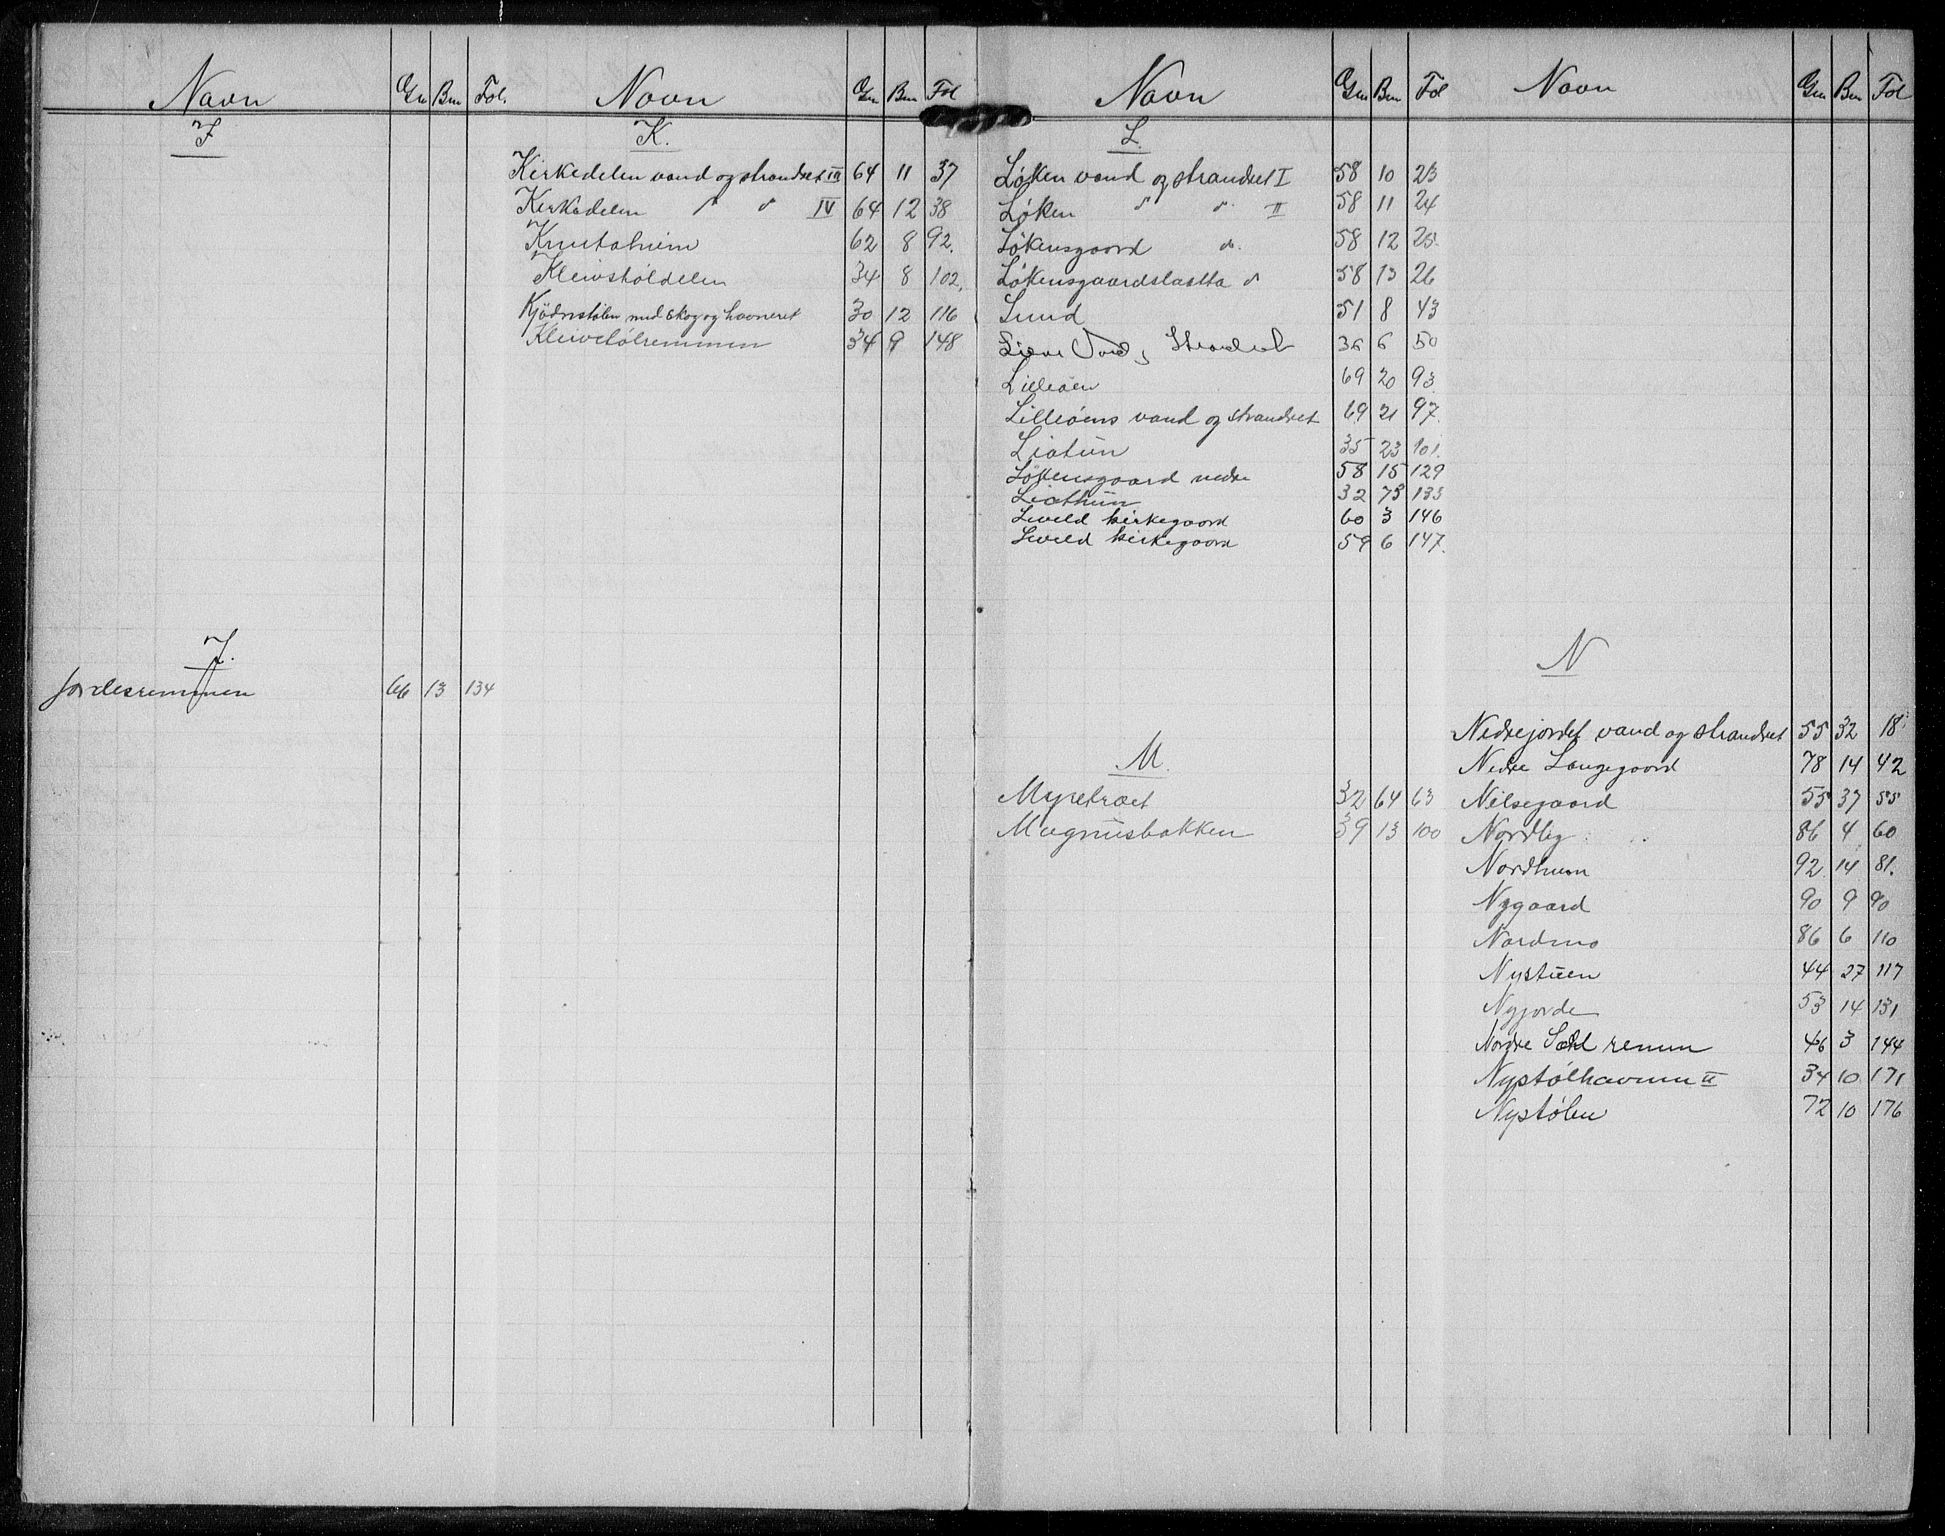 Navn Gn Bn Fol.
I
J.
Jordesremmen 66 13 134
Navn Gn Bn Fol
K.
Kirkedelen vand og strandret III 64 11 37
Kirkedelen " " IV 64 12 38
Knutsheim 62 8 92.
Kleivstøldelen 34 8 102.
Kjødnstølen med skog og havneret 30 12 116
Kleivstølremmen 34 9 148
Navn Gn Bn Fol
L.
Løken vand og strandret I 58 10 23
Løken " " II 58 11 24
Løkensgaard do. 58 12 25.
Løkensgaardslaatta " 58 13 26
Lund 51 8 43
Vand, Strandret 36 6 50
Lilleøen 69 20 93.
Lilleøens vand og strandret 69 21 97.
Liatun 35 23 101.
Løkensgaard nedre 58 15 129
Liathun 32 75 133
Leveld kirkegaard 60 3 146
Leveld kirkegaard 59 6 147.
M.
Myretræet 32 64 63
Magnusbakken 39 13 100
Navn Gn Bn Fol
N
Nedrejordet vand og strandret 55 32 18
Nedre Langegaard 78 14 42
Nilsegaard 55 37 55
Nordby 86 4 60
Nordheim 92 14 81.
Nygaard 90 9 90
Nordmo 86 6 110
Nystuen 44 27 117
Nyjorde 53 14 131
Nordre remm 46 3 144
Nystølhavnen II 34 10 171
Nystølen 72 10 176